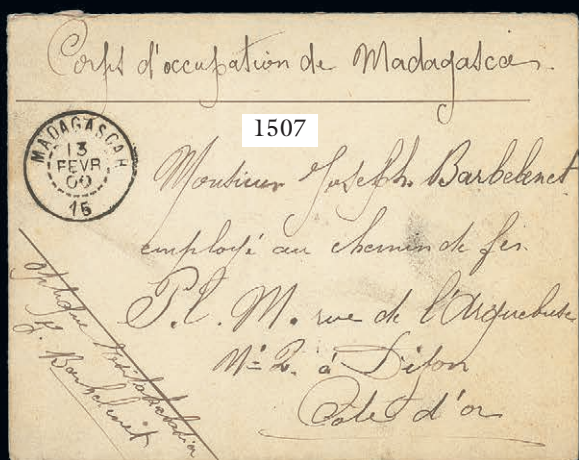 Corps d'occupation de Madagascar.
1507
MADAGASCAR
13
FEVR
00
15
Monsieur Joseph Barbelenet
employé au chemin de fer
P. L. M. rue de l'Arquebuse
N° 2. à Dijon
Côte d'or
J. Barbelenet